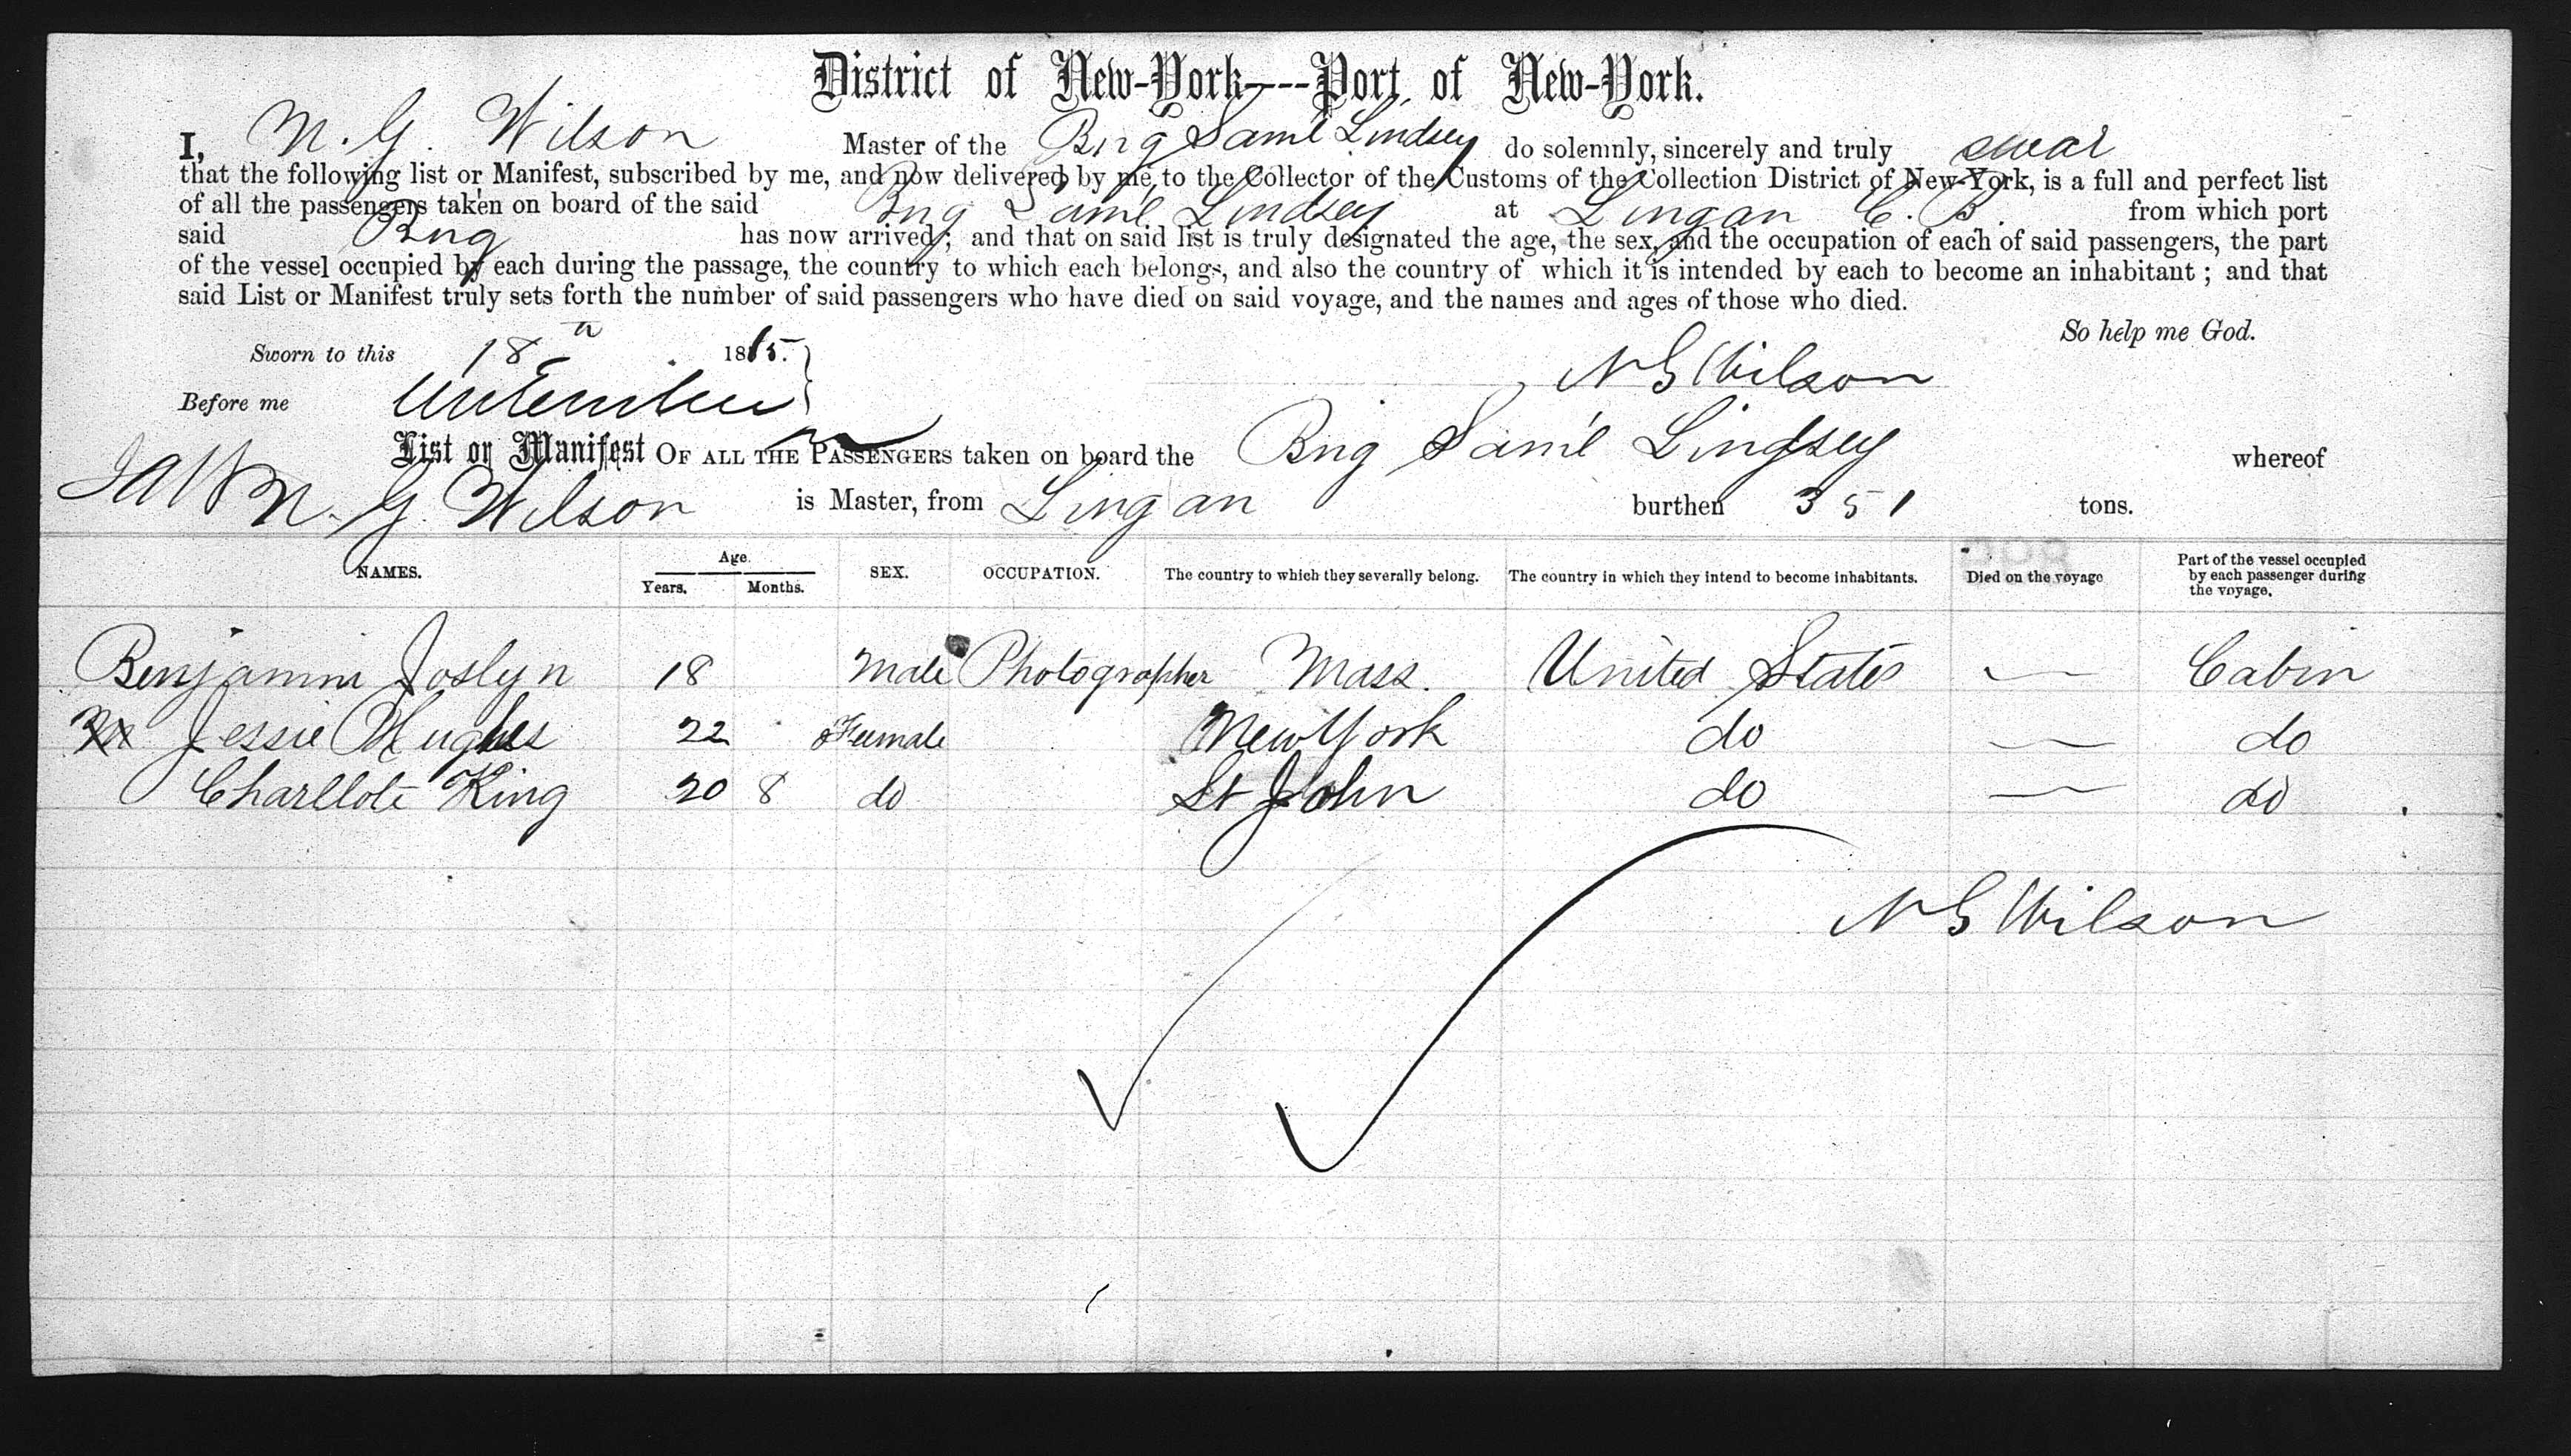 District of New-York---Port of New-York.
I, N. G. Wilson Master of the Brig Saml Lindsey do solemnly, sincerely and truly swear
that the following list or Manifest, subscribed by me, and now delivered by me, to the Collector of the Customs of the Collection District of New-York, is a full and perfect list
of all the passengers taken on board of the said Brig Saml Lindsey at Lingan C. B. from which port
said Brig has now arrived; and that on said list is truly designated the age, the sex, and the occupation of each of said passengers, the part
of the vessel occupied by each during the passage, the country to which each belongs, and also the country of which it is intended by each to become an inhabitant; and that
said List or Manifest truly sets forth the number of said passengers who have died on said voyage, and the names and ages of those who died.
So help me God.
Sworn to this 18th 1865.
N G Wilson
Before me
List or Manifest OF ALL THE PASSENGERS taken on board the Brig Saml Lindsey whereof
N. G. Wilson is Master, from Lingan burthen 351 tons.
NAMES. Age. Years. Months. SEX. OCCUPATION. The country to which they severally belong. The country in which they intend to become inhabitants. Died on the voyage Part of the vessel occupied by each passenger during the voyage.
Benjamin Joslyn 18 Male Photographer Mass. United States — Cabin
Jessie Hughes 22 Female New York do — do
Charllote King 20 8 do St John do — do
N G Wilson